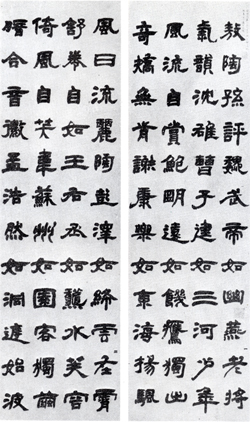 敖陶孫評魏武帝如幽燕老將
氣韻沈雄曹子建如三河少年
風流自賞鮑明遠如饑鷹獨出
奇矯無前謝康樂如東海揚颿
風日流麗陶彭澤如絳雲在霄
舒卷自如王右丞如龝水芙容
倚風自笑韋蘇州如園客獨繭
暗合音徽孟浩然如洞庭始波